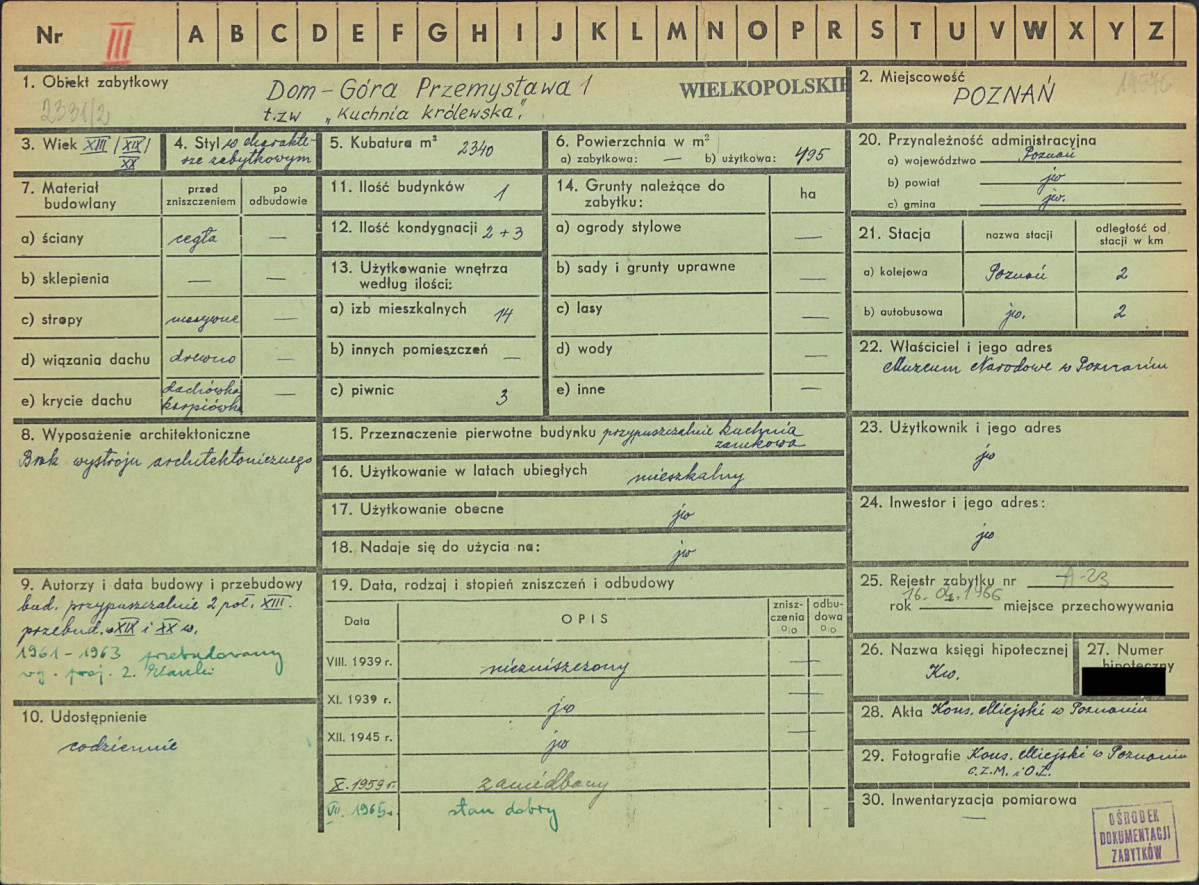 Nr III A B C D E F G H I J K L M N O P R S T U V W X Y Z
1. Obiekt zabytkowy
2331/2
Dom - Góra Przemysława 1
t.zw „Kuchnia królewska”
WIELKOPOLSKIE
2. Miejscowość
19576
POZNAŃ
3. Wiek XIII/XIX/
XX
4. Styl w charakte-
rze zabytkowym
5. Kubatura m³ 2340
6. Powierzchnia w m²
a) zabytkowa: — b) użytkowa: 495
7. Materiał
budowlany
przed
zniszczeniem
po
odbudowie
a) ściany cegła —
b) sklepienia — —
c) stropy masywne —
d) wiązania dachu drewno —
e) krycie dachu dachówka
karpiówka —
8. Wyposażenie architektoniczne
Brak wystroju architektonicznego
9. Autorzy i data budowy i przebudowy
bud. przypuszczalnie 2 poł. XIII.
przebud. w XIX i XX w.
1961 - 1963 przebudowany
wg. proj. Z.
10. Udostępnienie
codziennie
11. Ilość budynków 1
12. Ilość kondygnacji 2 + 3
13. Użytkowanie wnętrza
według ilości:
a) izb mieszkalnych 14
b) innych pomieszczeń —
c) piwnic 3
14. Grunty należące do
zabytku:
ha
a) ogrody stylowe —
b) sady i grunty uprawne —
c) lasy —
d) wody —
e) inne —
15. Przeznaczenie pierwotne budynku przypuszczalnie kuchnia
zamkowa
16. Użytkowanie w latach ubiegłych mieszkalny
17. Użytkowanie obecne jw
18. Nadaje się do użycia na: jw
19. Data, rodzaj i stopień zniszczeń i odbudowy
Data
OPIS
znisz-
czenia
%
odbu-
dowa
%
VIII. 1939 r. niezniszczony —
XI. 1939 r. jw —
XII. 1945 r. jw —
X. 1959 r. zaniedbany
VII. 1965 r. stan dobry - -
20. Przynależność administracyjna
a) województwo Poznań
b) powiat jw
c) gmina jw.
21. Stacja
nazwa stacji
odległość od
stacji w km
a) kolejowa Poznań 2
b) autobusowa jw. 2
22. Właściciel i jego adres
Muzeum Narodowe w Poznaniu
23. Użytkownik i jego adres
jw
24. Inwestor i jego adres:
jw
25. Rejestr zabytku nr A-23
rok 16.04.1966 miejsce przechowywania
26. Nazwa księgi hipotecznej
Kw.
27. Numer
hipoteczny
28. Akta Kons. Miejski w Poznaniu
29. Fotografie Kons. Miejski w Poznaniu
C.Z.M. i O.Z.
30. Inwentaryzacja pomiarowa
—
OŚRODEK
DOKUMENTACJI
ZABYTKÓW